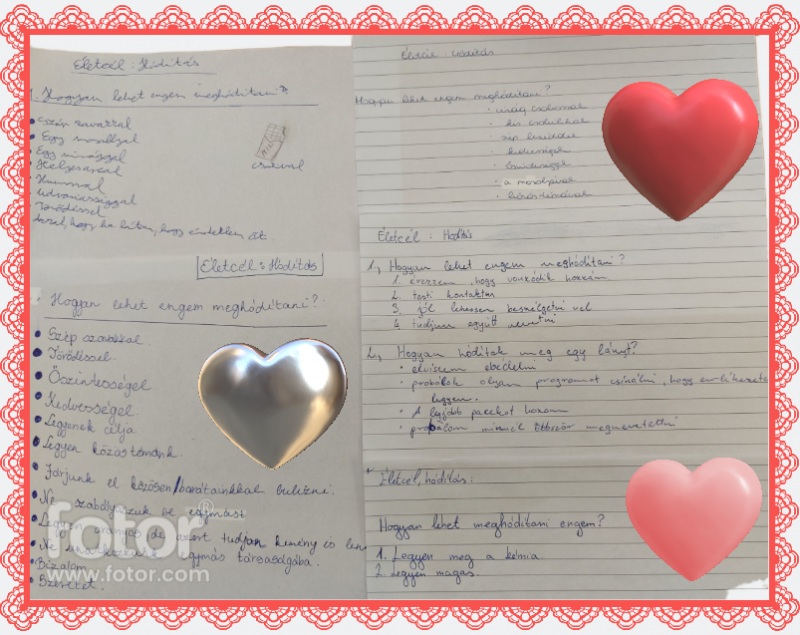 Életcél: Hódítás
1. Hogyan lehet engem meghódítani?
Szép szavakkal
Egy mosollyal
Egy virággal
Helyessége
Humorral
Udvariassággal
Törődéssel
Azzal, hogy ha látom, hogy érdeklem őt.
Életcél: Hódítás
Hogyan lehet engem meghódítani?
Szép szavakkal.
Törődéssel.
Őszinteséggel
Kedvességgel
Legyenek célja
Legyen közös témánk.
Járjunk el közösen/barátainkkal bulizni.
Ne szabályozzuk be egymást
Legyen de azért tudjon kemény is lenn
Ne egymás társaságába.
Bizalom
Szeretet.
Életcél: Hódítás
Hogyan lehet engem meghódítani?
virág csokorral
kedvességgel
a mosolyával
Életcél: Hódítás
1., Hogyan lehet engem meghódítani?
1. érezzem, hogy vonzódik hozzám
2. testi kontaktus
3. jól lehessen beszélgetni vele
4. tudjunk együtt nevetni
2., Hogyan hódítok meg egy lányt?
elviszem ebédelni
próbálok olyan programot csinálni, hogy emlékezetes
legyen.
A legjobb hozom
próbálom minél többször megnevettetni
Életcél, hódítás:
Hogyan lehet meghódítani engem?
1. Legyen meg a kémia
2. Legyen magas.
fotor
www.fotor.com